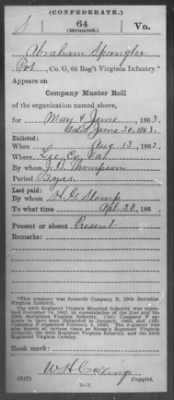 (CONFEDERATE.)
S 64 Va.
(Mounted.)
Abraham Spangler
Pvt., Co. G, 64 Reg't Virginia Infantry.*
Appears on
Company Muster Roll
of the organization named above,
for May & June, 1863.
dated June 30, 1863.
Enlisted:
When Aug 13, 1862.
Where Lee Co. Va.
By whom J. B. Thompson
Period 3 yrs.
Last paid:
By whom H. G. Slemp
To what time Apl 30, 186
Present or absent Present
Remarks:
*This company was formerly Company E, 29th Battalion
Virginia Infantry.
Book mark:
W H Collings
Copyist.